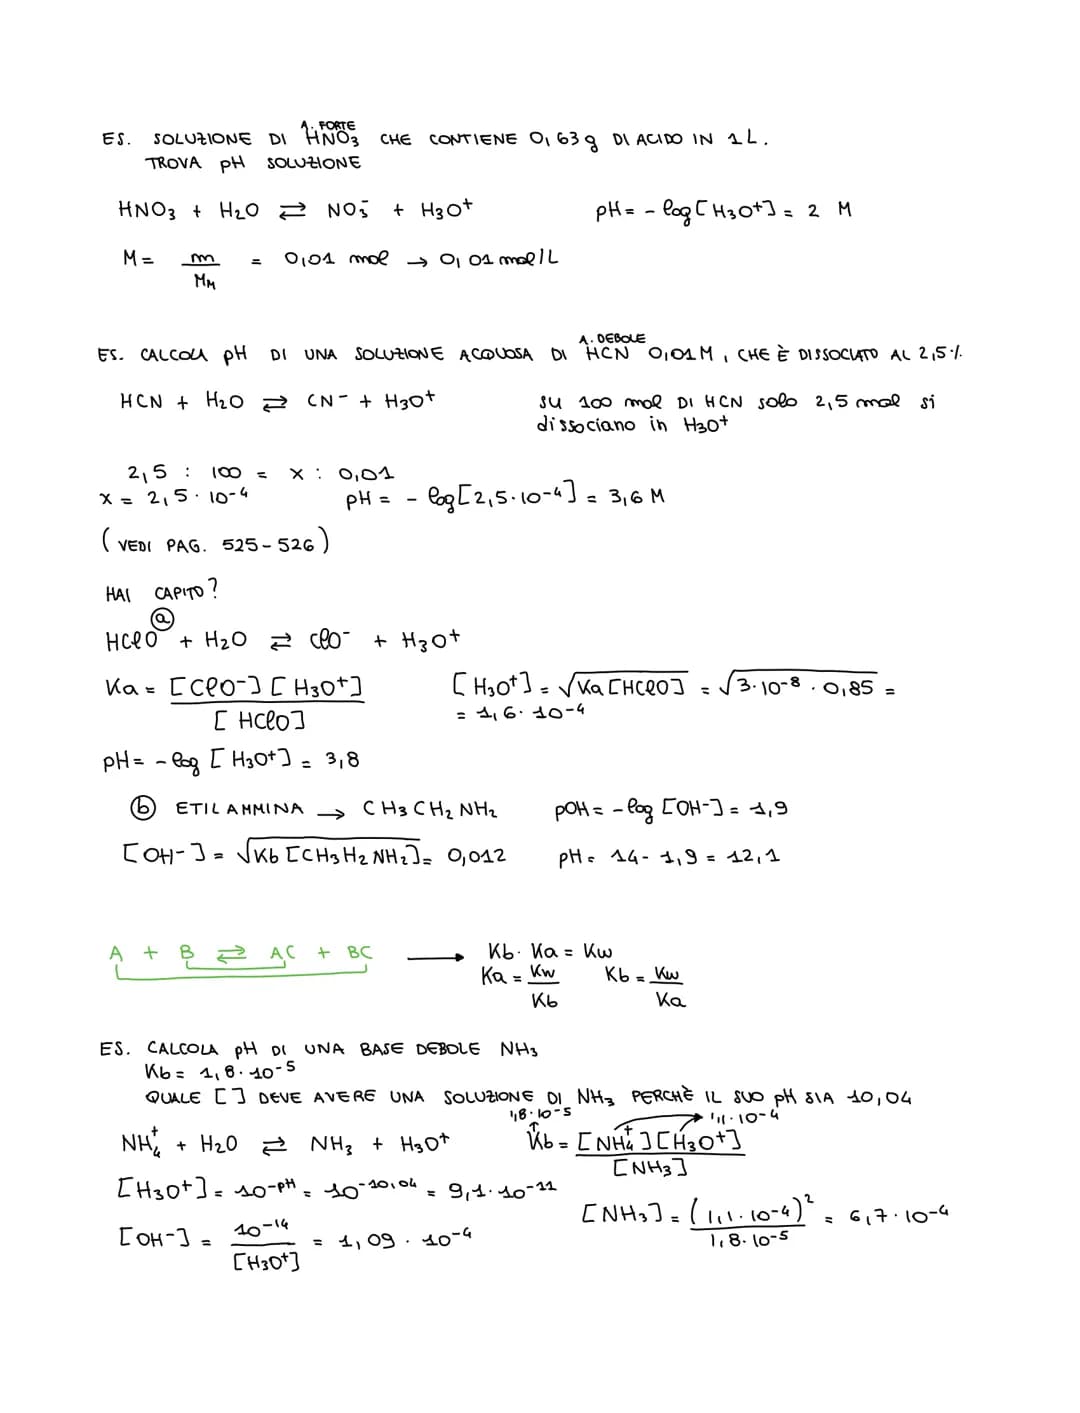 A. FORTE
ES. SOLUZIONE DI HNO3 CHE CONTIENE 0,63 g DI ACIDO IN 1L.
TROVA pH SOLUZIONE
HNO3 + H2O ⇄ NO3⁻ + H3O⁺ pH = - log [H3O⁺] = 2 M
M = m/MM = 0,01 mol → 0,01 mol/L
A. DEBOLE
ES. CALCOLA pH DI UNA SOLUZIONE ACQUOSA DI HCN 0,01M, CHE È DISSOCIATO AL 2,5%.
HCN + H2O ⇄ CN⁻ + H3O⁺ su 100 mol DI HCN solo 2,5 mol si
dissociano in H3O⁺
2,5 : 100 = x : 0,01
x = 2,5 · 10⁻⁴ pH = - log [2,5·10⁻⁴] = 3,6 M
(VEDI PAG. 525-526)
HAI CAPITO?
ⓐ
HClO + H2O ⇄ ClO⁻ + H3O⁺
Ka = [ClO⁻][H3O⁺] / [HClO] [H3O⁺] = √Ka[HClO] = √3·10⁻⁸ · 0,85 =
= 1,6 · 10⁻⁴
pH = - log [H3O⁺] = 3,8
ⓑ ETILAMMINA → CH3CH2NH2 pOH = - log [OH-] = 1,9
[OH-] = √Kb [CH3H2NH2] = 0,012 pH = 14 - 1,9 = 12,1
A + B ⇄ AC + BC → Kb · Ka = Kw
Ka = Kw/Kb Kb = Kw/Ka
ES. CALCOLA pH DI UNA BASE DEBOLE NH3
Kb = 1,8 · 10⁻⁵
QUALE [] DEVE AVERE UNA SOLUZIONE DI NH3 PERCHÈ IL SUO pH SIA 10,04
1,8·10⁻⁵ 1,1·10⁻⁴
NH4⁺ + H2O ⇄ NH3 + H3O⁺ Kb = [NH4⁺][H3O⁺] / [NH3]
[H3O⁺] = 10⁻ᵖᴴ = 10⁻¹⁰,⁰⁴ = 9,1 · 10⁻¹¹
[OH-] = 10⁻¹⁴/[H3O⁺] = 1,09 · 10⁻⁴ [NH3] = (1,1·10⁻⁴)² / 1,8·10⁻⁵ = 6,7 · 10⁻⁴